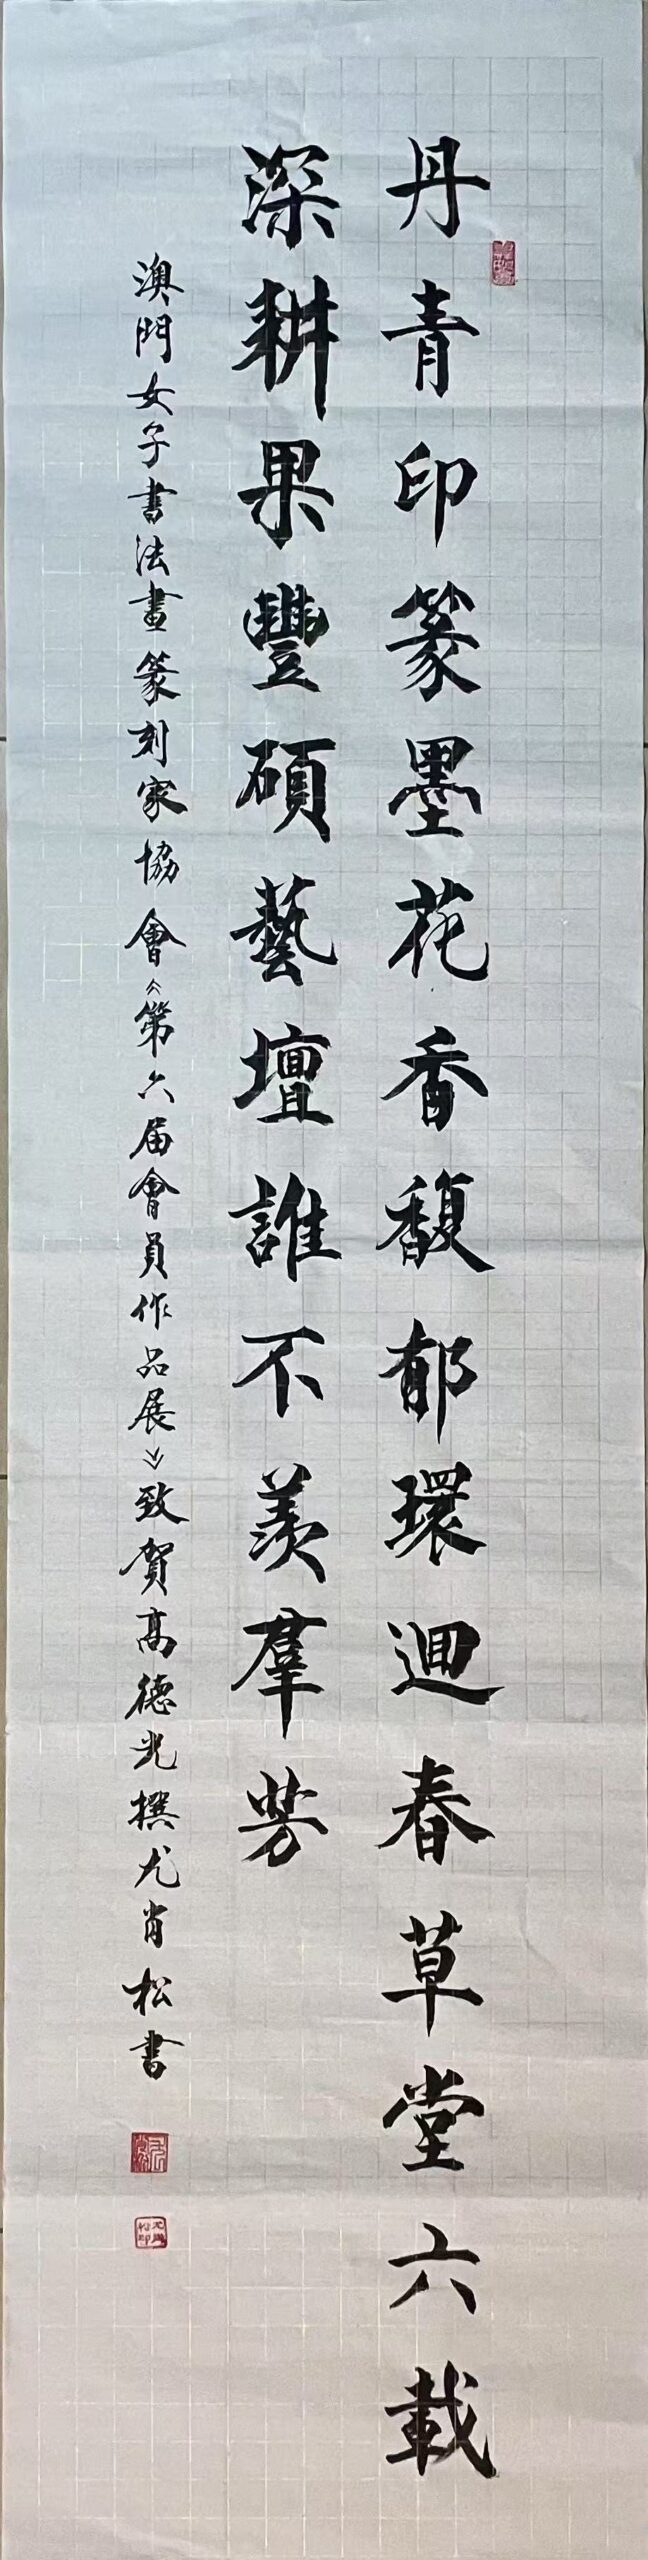 丹青印篆墨花香馥郁環迴春草堂六載
深耕果豐碩藝壇誰不羨羣芳
澳門女子書法畫篆刻家協會《第六届會員作品展》致賀高德光撰尤肖松書